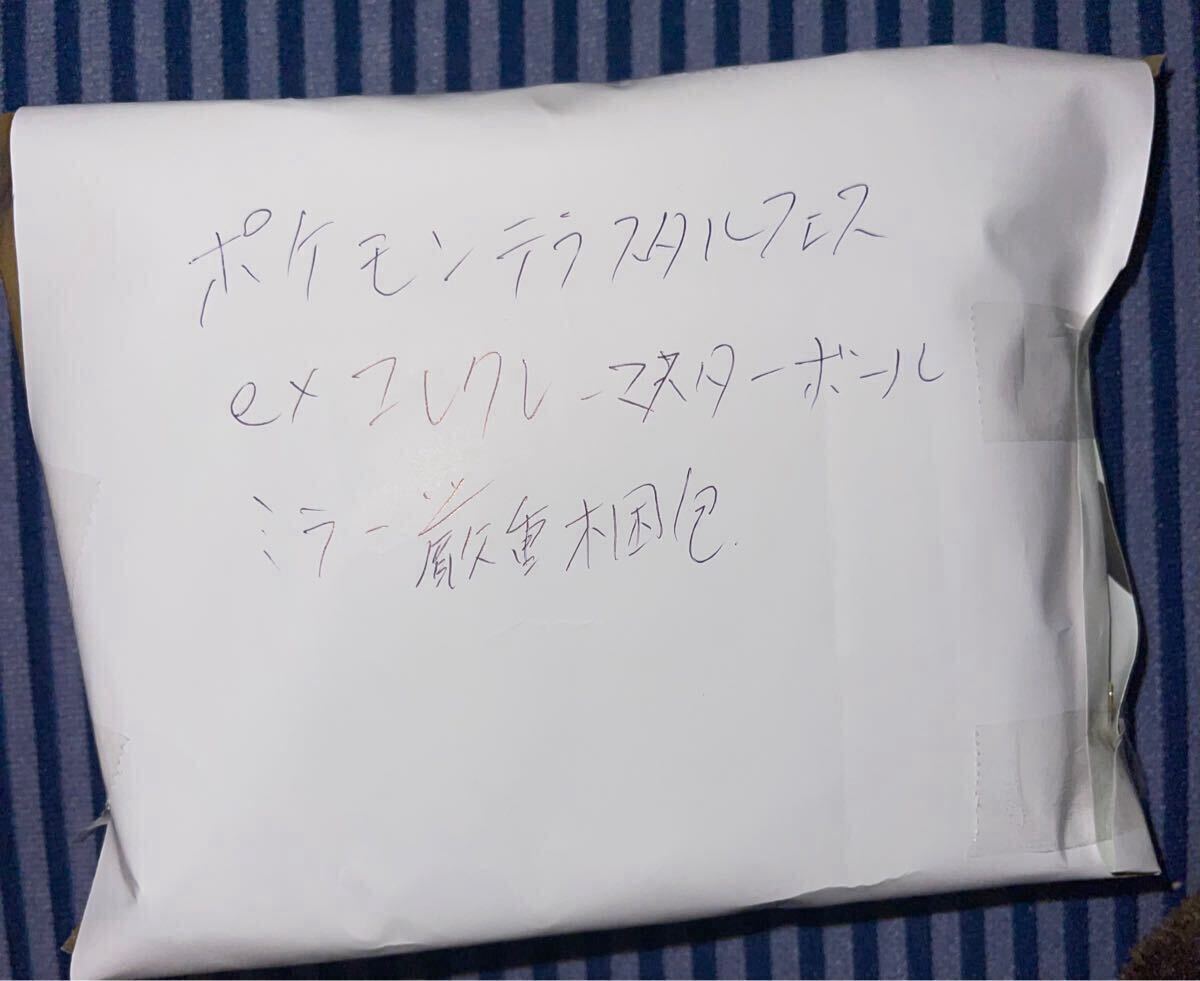 ポケモンテラスタルフェス
exコレクレーマスターボール
ミラー厳重梱包